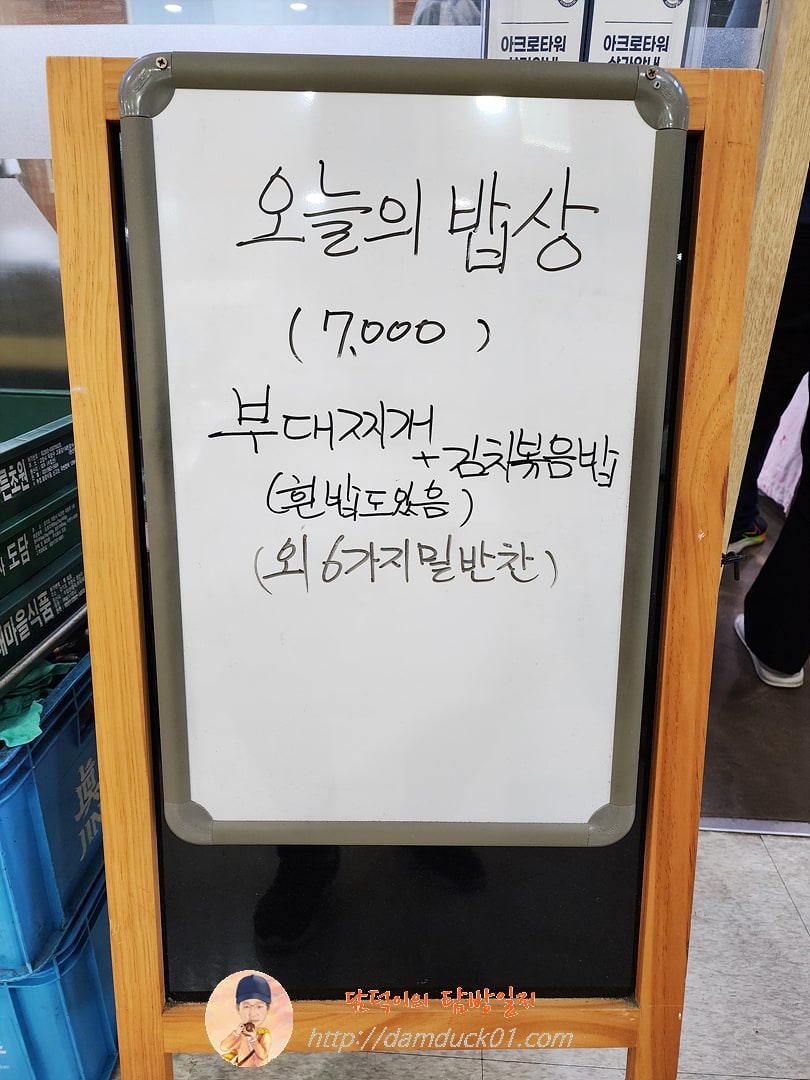 아크로타워 아크로타워
상가안내 상가안내
오늘의 밥상
(7,000)
부대찌개
+김치볶음밥
(흰밥도있음)
(외 6가지밑반찬)
른초원
도담
새마을식품
眞
JIN
담덕이의 탐방일지
http://damduck01.com